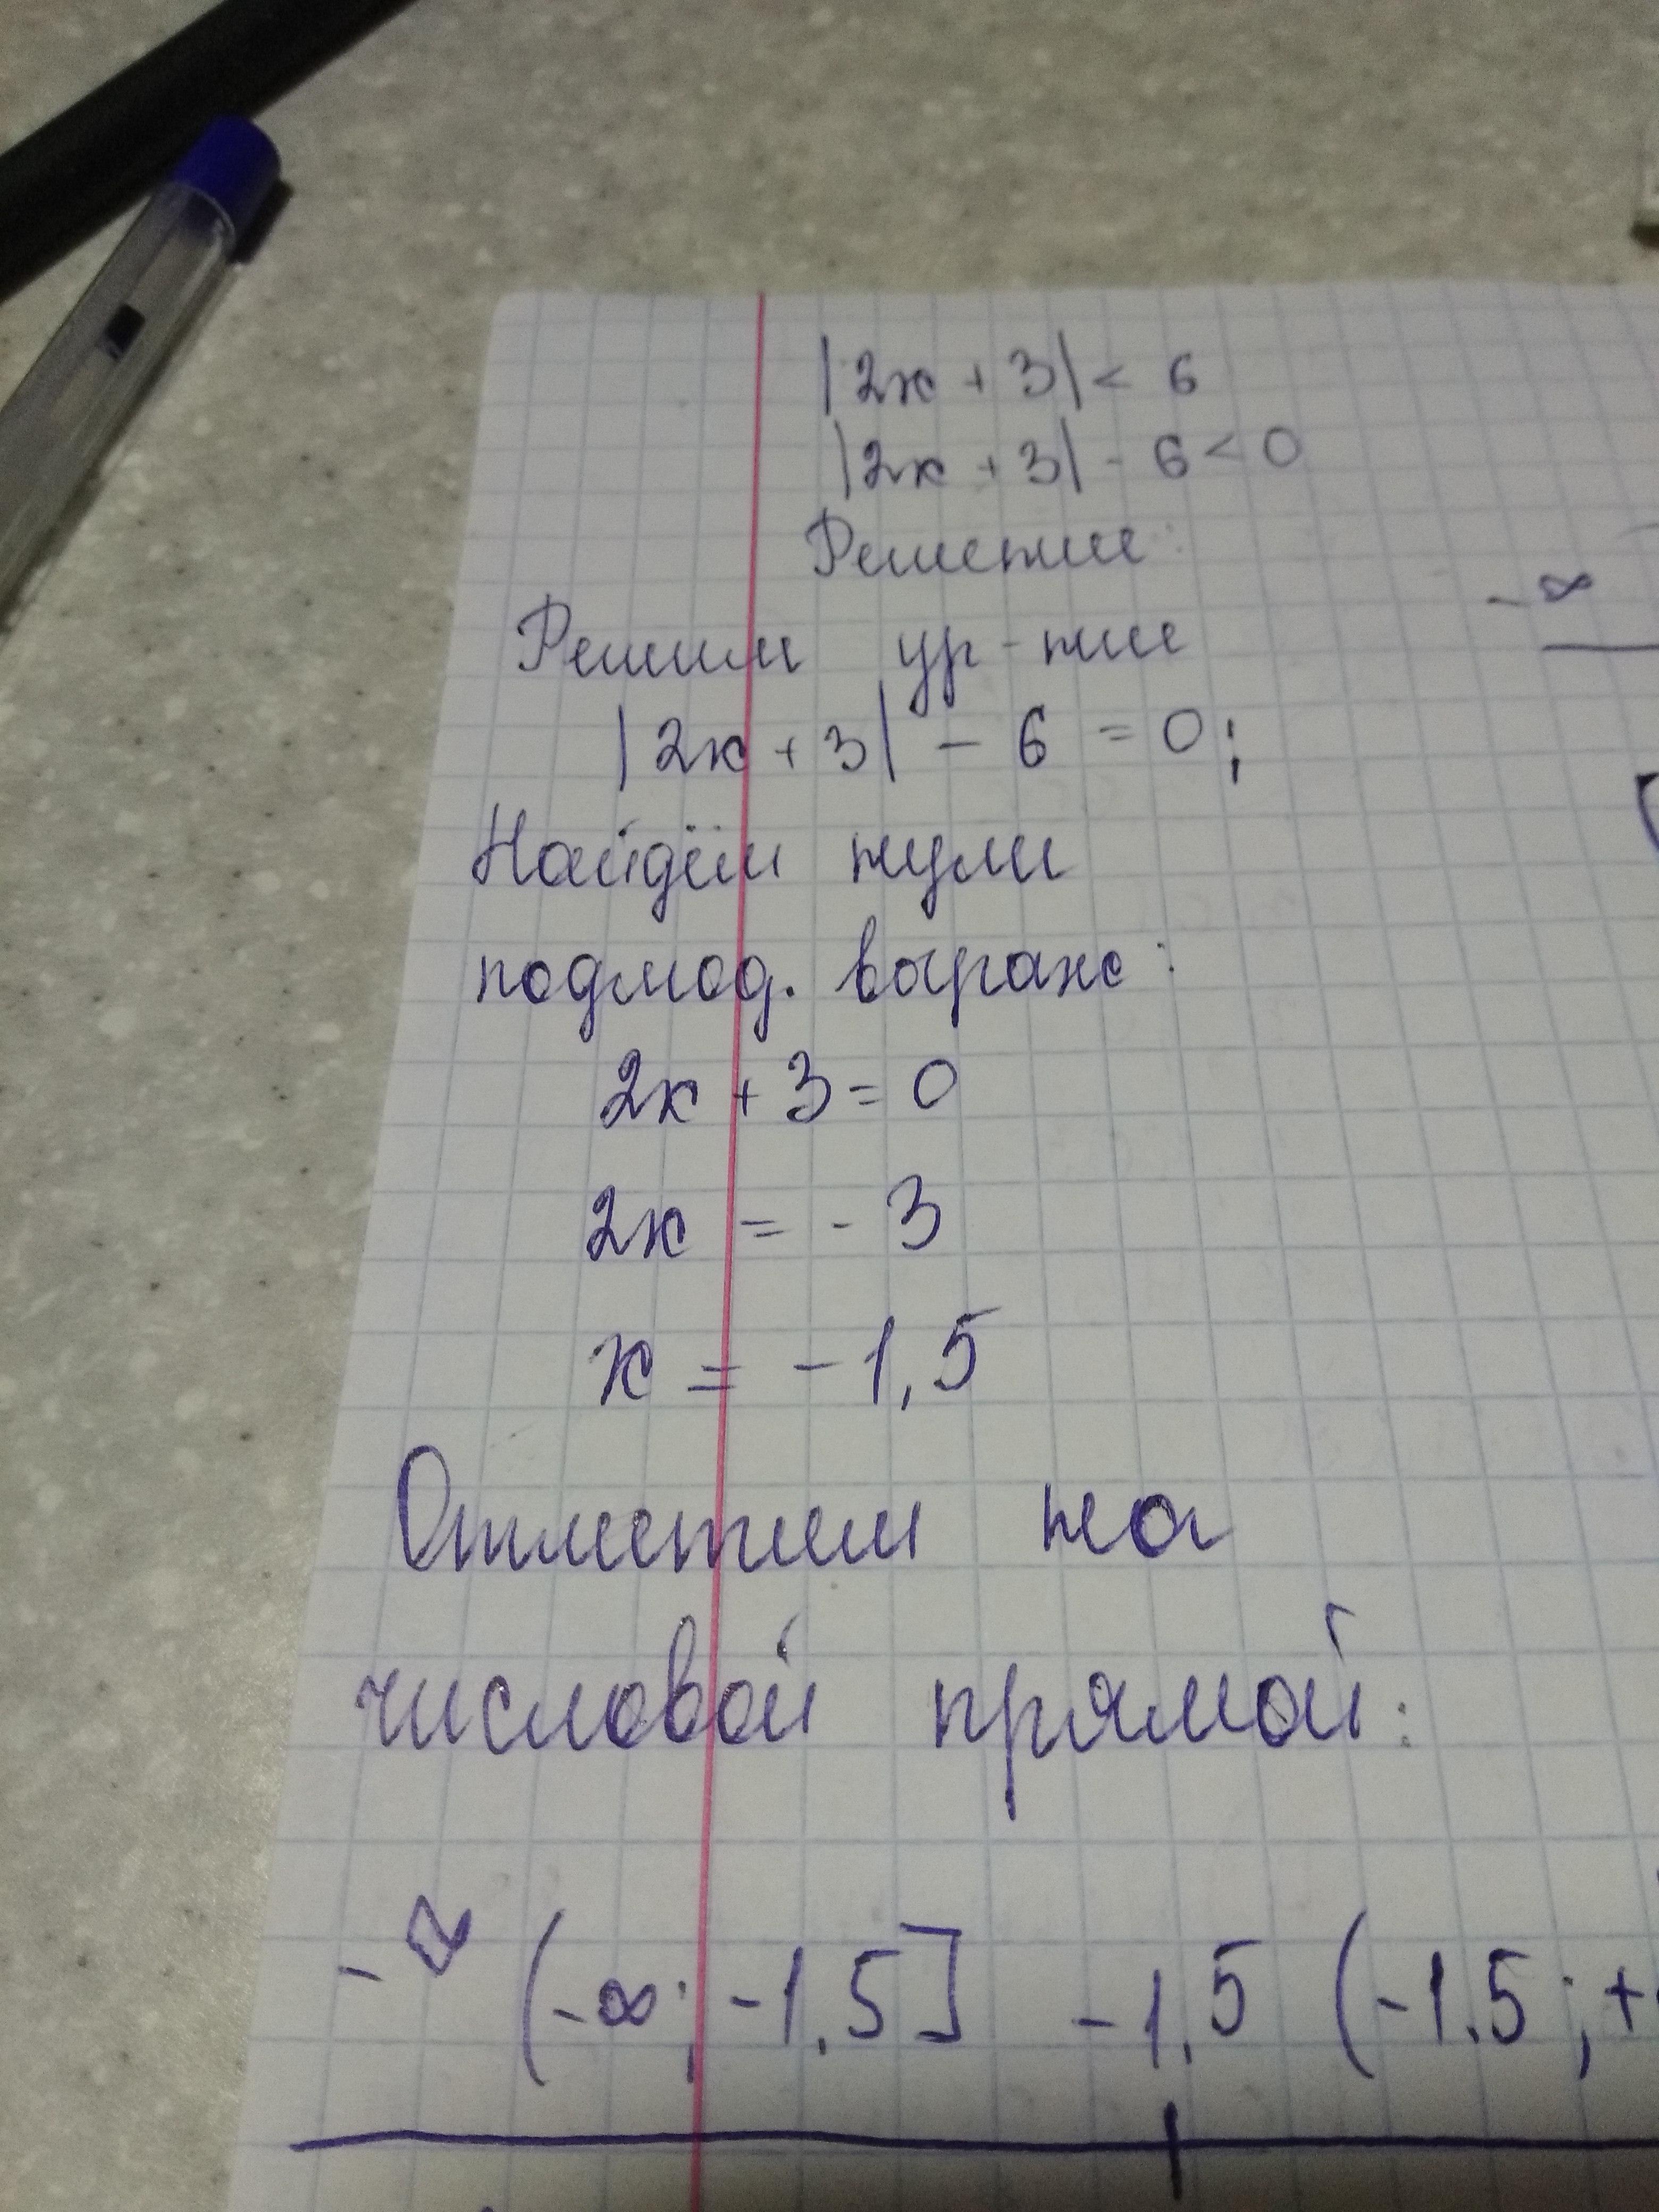 |2x + 3| < 6
|2x + 3| - 6 < 0
Решение:
Решим ур-ние
|2x + 3| - 6 = 0;
Найдём нули
подмод. выраж:
2x + 3 = 0
2x = - 3
x = - 1,5
Отметим на
числовой прямой:
-∞ (-∞; -1,5] -1,5 (-1.5; +
-∞